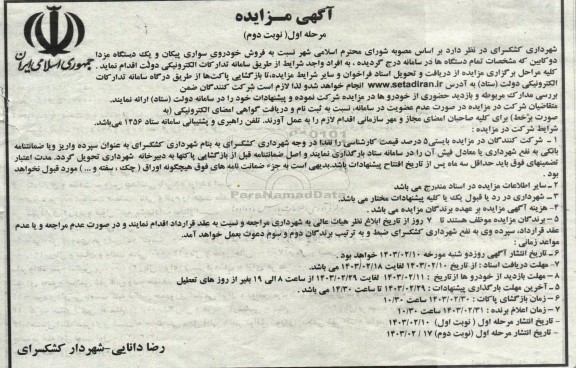 آگهی مزایده
مرحله اول (نوبت دوم)
جمهوری اسلامی ایران
شهرداری کشکسرای در نظر دارد بر اساس مصوبه شورای محترم اسلامی شهر نسبت به فروش خودروی سواری پیکان و یک دستگاه مزدا
دوکابین که مشخصات تمام دستگاه ها در سامانه درج گردیده ، به افراد واجد شرایط از طریق سامانه تدارکات الکترونیکی دولت اقدام نماید .
کلیه مراحل برگزاری مزایده از دریافت و تحویل اسناد فراخوان و سایر شرایط مزایده،تا بازگشایی پاکت‌ها از طریق درگاه سامانه تدارکات
الکترونیکی دولت (ستاد) به آدرس www.setadiran.ir انجام خواهد شدو لذا لازم است شرکت کنندگان ضمن
بررسی مدارک مربوطه و بازدید حضوری از خودرو ها در مزایده شرکت نموده و پیشنهادات خود را در سامانه دولت (ستاد) ارائه نمایند.
متقاضیان شرکت در مزایده در صورت عدم عضویت در سامانه، نسبت به ثبت نام و دریافت گواهی امضای الکترونیکی (به
صورت برخط) برای کلیه صاحبان امضای مجاز و مهر سازمانی اقدام لازم را به عمل آورند. تلفن راهبری و پشتیبانی سامانه ستاد ۱۴۵۶ می‌باشد.
شرایط شرکت در مزایده :
۱ - شرکت کنندگان در مزایده بایستی۵ درصد قیمت کارشناسی را نقدا در وجه شهرداری کشکسرای به بنام شهرداری کشکسرای به عنوان سپرده واریز ویا ضمانتنامه
بانکی به نفع شهرداری یا معادل فیش آن را،در سامانه ستاد بارگذاری نمایند و اصل ضمانتنامه قبل از بازگشایی پاکتها به دبیرخانه شهرداری تحویل گردد. مدت اعتبار
تضمینهای فوق باید حداقل سه ماه پس از تاریخ افتتاح پیشنهادات باشد.بدیهی است به جزء ضمانت نامه های فوق هیچگونه اوراق ( چک ، سفته و ... ) مورد قبول نخواهد
بود .
۲ – سایر اطلاعات مزایده در اسناد مندرج می باشد
۳ – شهرداری در رد یا قبول یک یا کلیه پیشنهادات مختار می باشد.
۴- هزینه آگهی مزایده بر عهده برندگان مزایده می باشد .
۵ – برندگان مزایده موظف هستند تا ۷ روز از تاریخ ابلاغ نظر هیات عالی به شهرداری مراجعه و نسبت به عقد قرارداد اقدام نمایند و در صورت عدم مراجعه و یا عدم
عقد قرارداد، سپرده وی به نفع شهرداری کشکسرای ضبط و به ترتیب برندگان دوم و سوم دعوت بعمل خواهد آمد.
مواعد زمانی :
۶ – تاریخ انتشار آگهی روزدو شنبه مورخه ۱۴۰۳/۰۲/۱۰ خواهد بود .
۷- مهلت دریافت اسناد : از تاریخ ۱۴۰۳/۰۲/۱۰ لغایت ۱۴۰۳/۰۲/۱۸ می باشد.
۸ – مهلت بازدید از خودرو ها ازتاریخ : ۱۴۰۳/۰۲/۱۱ لغایت ۱۴۰۳/۰۲/۲۹ از ساعت ۸ الی ۱۹ بغیر از روز های تعطیل
۵ – آخرین مهلت بارگذاری پیشنهادات : ۱۴۰۳/۰۲/۲۹ تا ساعت ۱۴/۳۰ می باشد .
۶ – زمان بازگشای پاکات : ۱۴۰۳/۰۲/۳۰ ساعت ۱۰/۳۰
۷ – زمان اعلام برنده : ۱۴۰۳/۰۲/۳۱ ساعت ۱۰/۳۰
- تاریخ انتشار مرحله اول ( نوبت اول) ۱۴۰۳/۰۲/۱۰
- تاریخ انتشار مرحله اول (نوبت دوم) ۱۷ / ۰۲ / ۱۴۰۳
رضا دانایی–شهردار کشکسرای
ParsNamadData